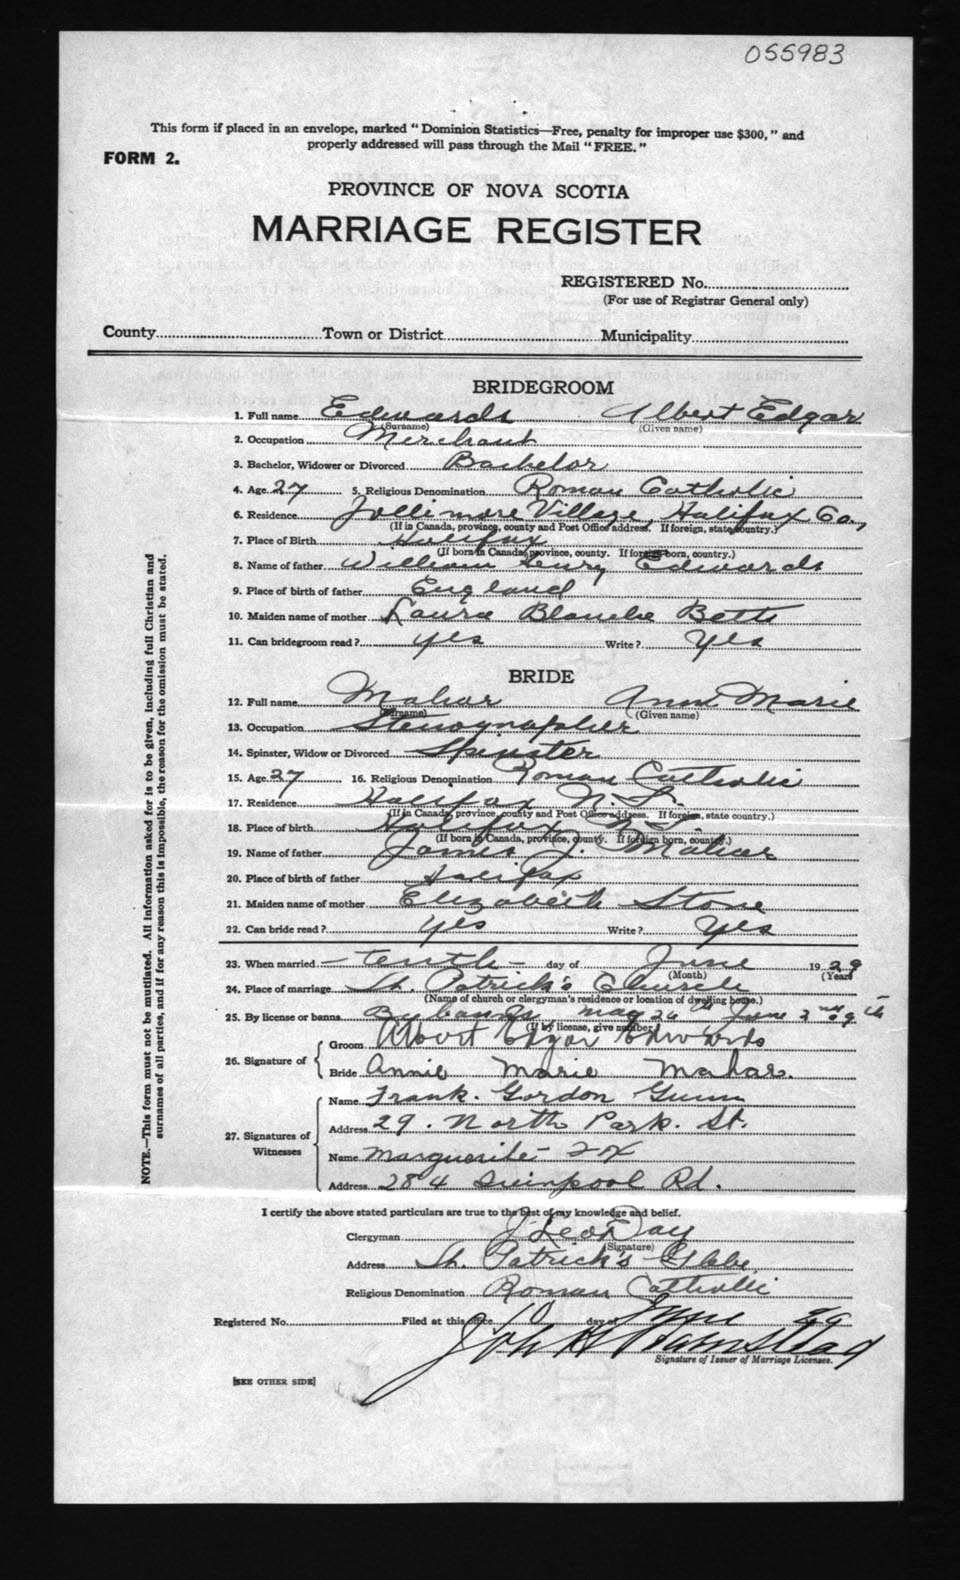 055983
This form if placed in an envelope, marked "Dominion Statistics—Free, penalty for improper use $300," and
properly addressed will pass through the Mail "FREE."
FORM 2.
PROVINCE OF NOVA SCOTIA
MARRIAGE REGISTER
REGISTERED No.
(For use of Registrar General only)
County Town or District Municipality
BRIDEGROOM
1. Full name Edwards Albert Edgar
(Surname) (Given name)
2. Occupation Merchant
3. Bachelor, Widower or Divorced Bachelor
4. Age 27 5. Religious Denomination Roman Catholic
6. Residence Jollimore Village, Halifax Co.,
(If in Canada, province, county and Post Office address. If foreign, state country.)
7. Place of Birth Halifax
(If born in Canada, province, county. If foreign born, country.)
8. Name of father William Henry Edwards
9. Place of birth of father England
10. Maiden name of mother Laura Blanche Betts
11. Can bridegroom read? yes Write? Yes
BRIDE
12. Full name Mahar Ann Marie
(Surname) (Given name)
13. Occupation Stenographer
14. Spinster, Widow or Divorced Spinster
15. Age 27 16. Religious Denomination Roman Catholic
17. Residence Halifax N.S.
(If in Canada, province, county and Post Office address. If foreign, state country.)
18. Place of birth Halifax N.S.
(If born in Canada, province, county. If foreign born, country.)
19. Name of father James J. Mahar
20. Place of birth of father Halifax
21. Maiden name of mother Elizabeth Stone
22. Can bride read? yes Write? Yes
23. When married — tenth — day of June 1929
(Month) (Year)
24. Place of marriage St. Patrick's Church
(Name of church or clergyman's residence or location of dwelling house.)
25. By license or banns By banns May 26th June 2nd & 9th
(If by license, give number.)
26. Signature of
Groom Albert Edgar Edwards
Bride Annie Marie Mahar.
27. Signatures of Witnesses
Name Frank. Gordon Gunn
Address 29. North Park. St.
Name Marguerite Fox
Address 284 Quinpool Rd.
I certify the above stated particulars are true to the best of my knowledge and belief.
Clergyman J. Leo Day
(Signature)
Address St. Patrick's Glebe
Religious Denomination Roman Catholic
Registered No. Filed at this office 10 day of June 29
Signature of Issuer of Marriage Licenses.
[SEE OTHER SIDE]
NOTE.—This form must not be mutilated. All information asked for is to be given, including full Christian and
surnames of all parties, and if for any reason this is impossible, the reason for the omission must be stated.